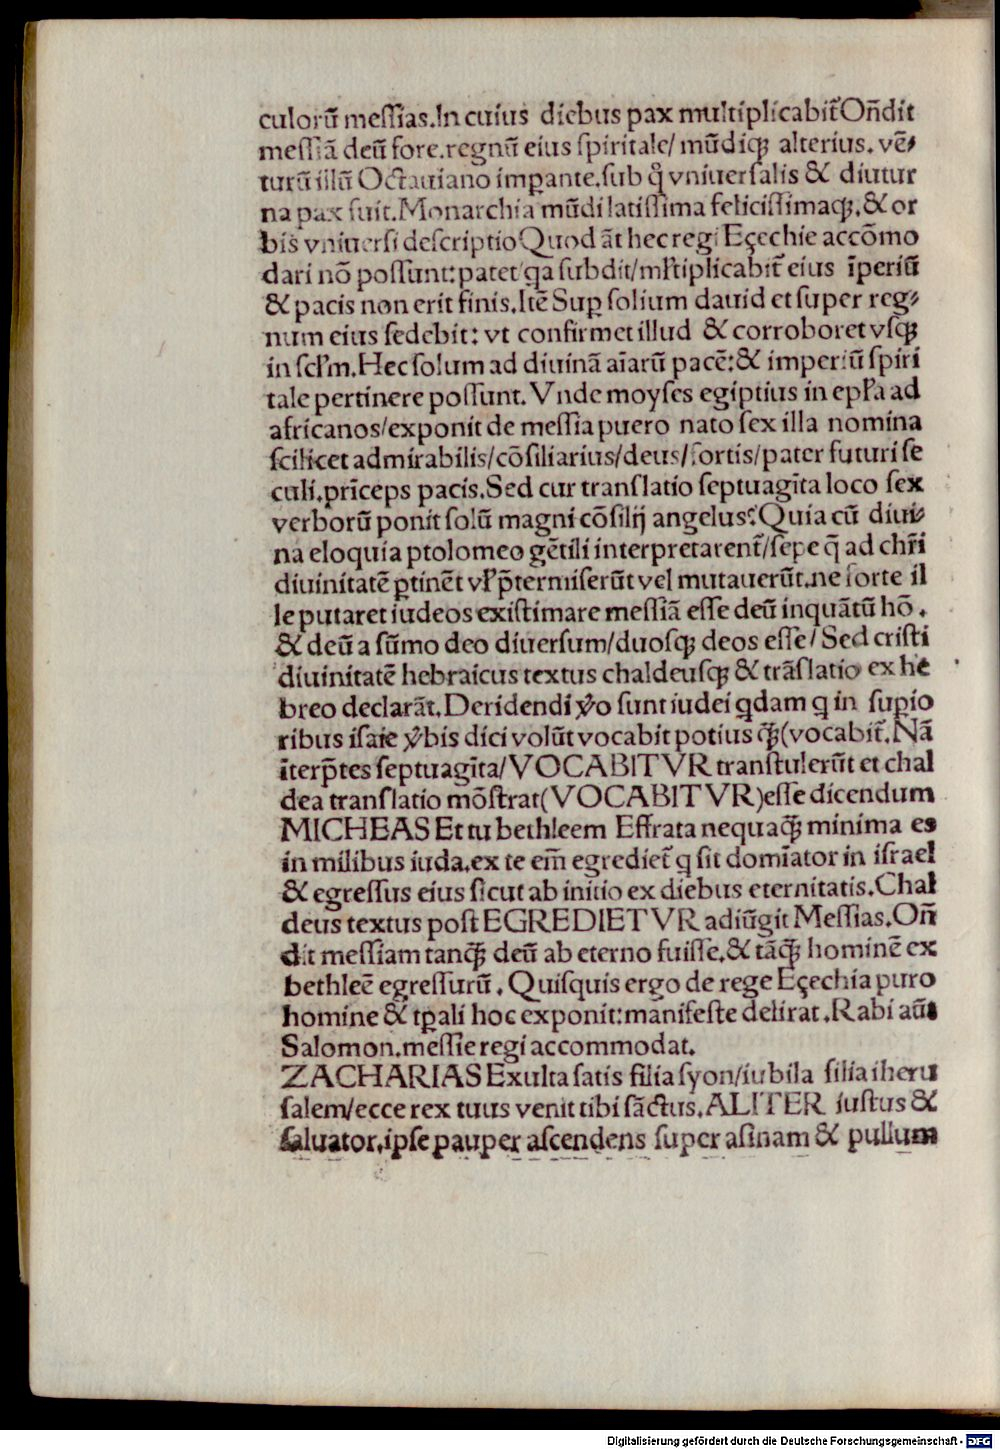 culorū messias.In cuius diebus pax multiplicabit᷑Oñdit
messiā deū fore.regnū eius spiritale/ mūdiqꝫ alterius. vē⸗
turū illū Octauiano imꝑante.sub q̊ vniuersalis & diutur
na pax fuit.Monarchia mūdi latissima felicissimaqꝫ.& or
bis vniuersi descriptioQuod āt hec regi Eçechie accōmo
dari nō possunt:patet/qa subdit/mƚtiplicabit᷑ eius īperiū
& pacis non erit finis.Itē Suꝑ solium dauid et super reg⸗
num eius sedebit: vt confirmet illud & corroboret vsqꝫ
in scƚm.Hec solum ad diuinā aīarū pacē:& imperiū spiri
tale pertinere possunt. Vnde moyses egiptius in epƚa ad
africanos/exponit de messia puero nato sex illa nomina
scilicet admirabilis/cōsiliarius/deus/fortis/pater futuri se
culi.prīceps pacis.Sed cur translatio septuagīta loco sex
verborū ponit solū magni cōsilij angelus?Quia cū diui⸗
na eloquia ptolomeo gētili interpretarent᷑/sepe q̄ ad chr̄i
diuinitatē ꝑtinēt vƚ p̄termiserūt vel mutauerūt.ne forte il
le putaret iudeos existimare messiā esse deū inquātū hō.
& deū a sūmo deo diuersum/duosqꝫ deos esse/ Sed cristi
diuinitatē hebraicus textus chaldeusqꝫ & trāslatio ex he
breo declarāt.Deridendi v̊o sunt iudei qdam q in suꝑio
ribus isaie v̊bis dici volūt vocabit potius q̄ꝫ(vocabit᷑.Nā
īterp̄tes septuagīta/VOCABITVR transtulerūt et chal
dea translatio mōstrat(VOCABITVR)esse dicendum
MICHEAS Et tu bethleem Effrata nequaq̄ꝫ minima es
in milibus iuda.ex te em̄ egrediet᷑ q sit domīator in israel
& egressus eius sicut ab initio ex diebus eternitatis.Chal
deus textus post EGREDIETVR adiūgit Messias.Oñ
dit messiam tanq̄ꝫ deū ab eterno fuisse.& tāq̄ꝫ hominē ex
bethleē egressurū. Quisquis ergo de rege Eçechia puro
homine & tꝑali hoc exponit:manifeste delirat.Rabi aūt
Salomon.messie regi accommodat.
ZACHARIAS Exulta satis filia syon/iubila filia iheru
salem/ecce rex tuus venit tibi sāctus.ALITER iustus &
saluator.ipse pauper ascendens super asinam & pullum
Digitalisierung gefördert durch die Deutsche Forschungsgemeinschaft - DFG